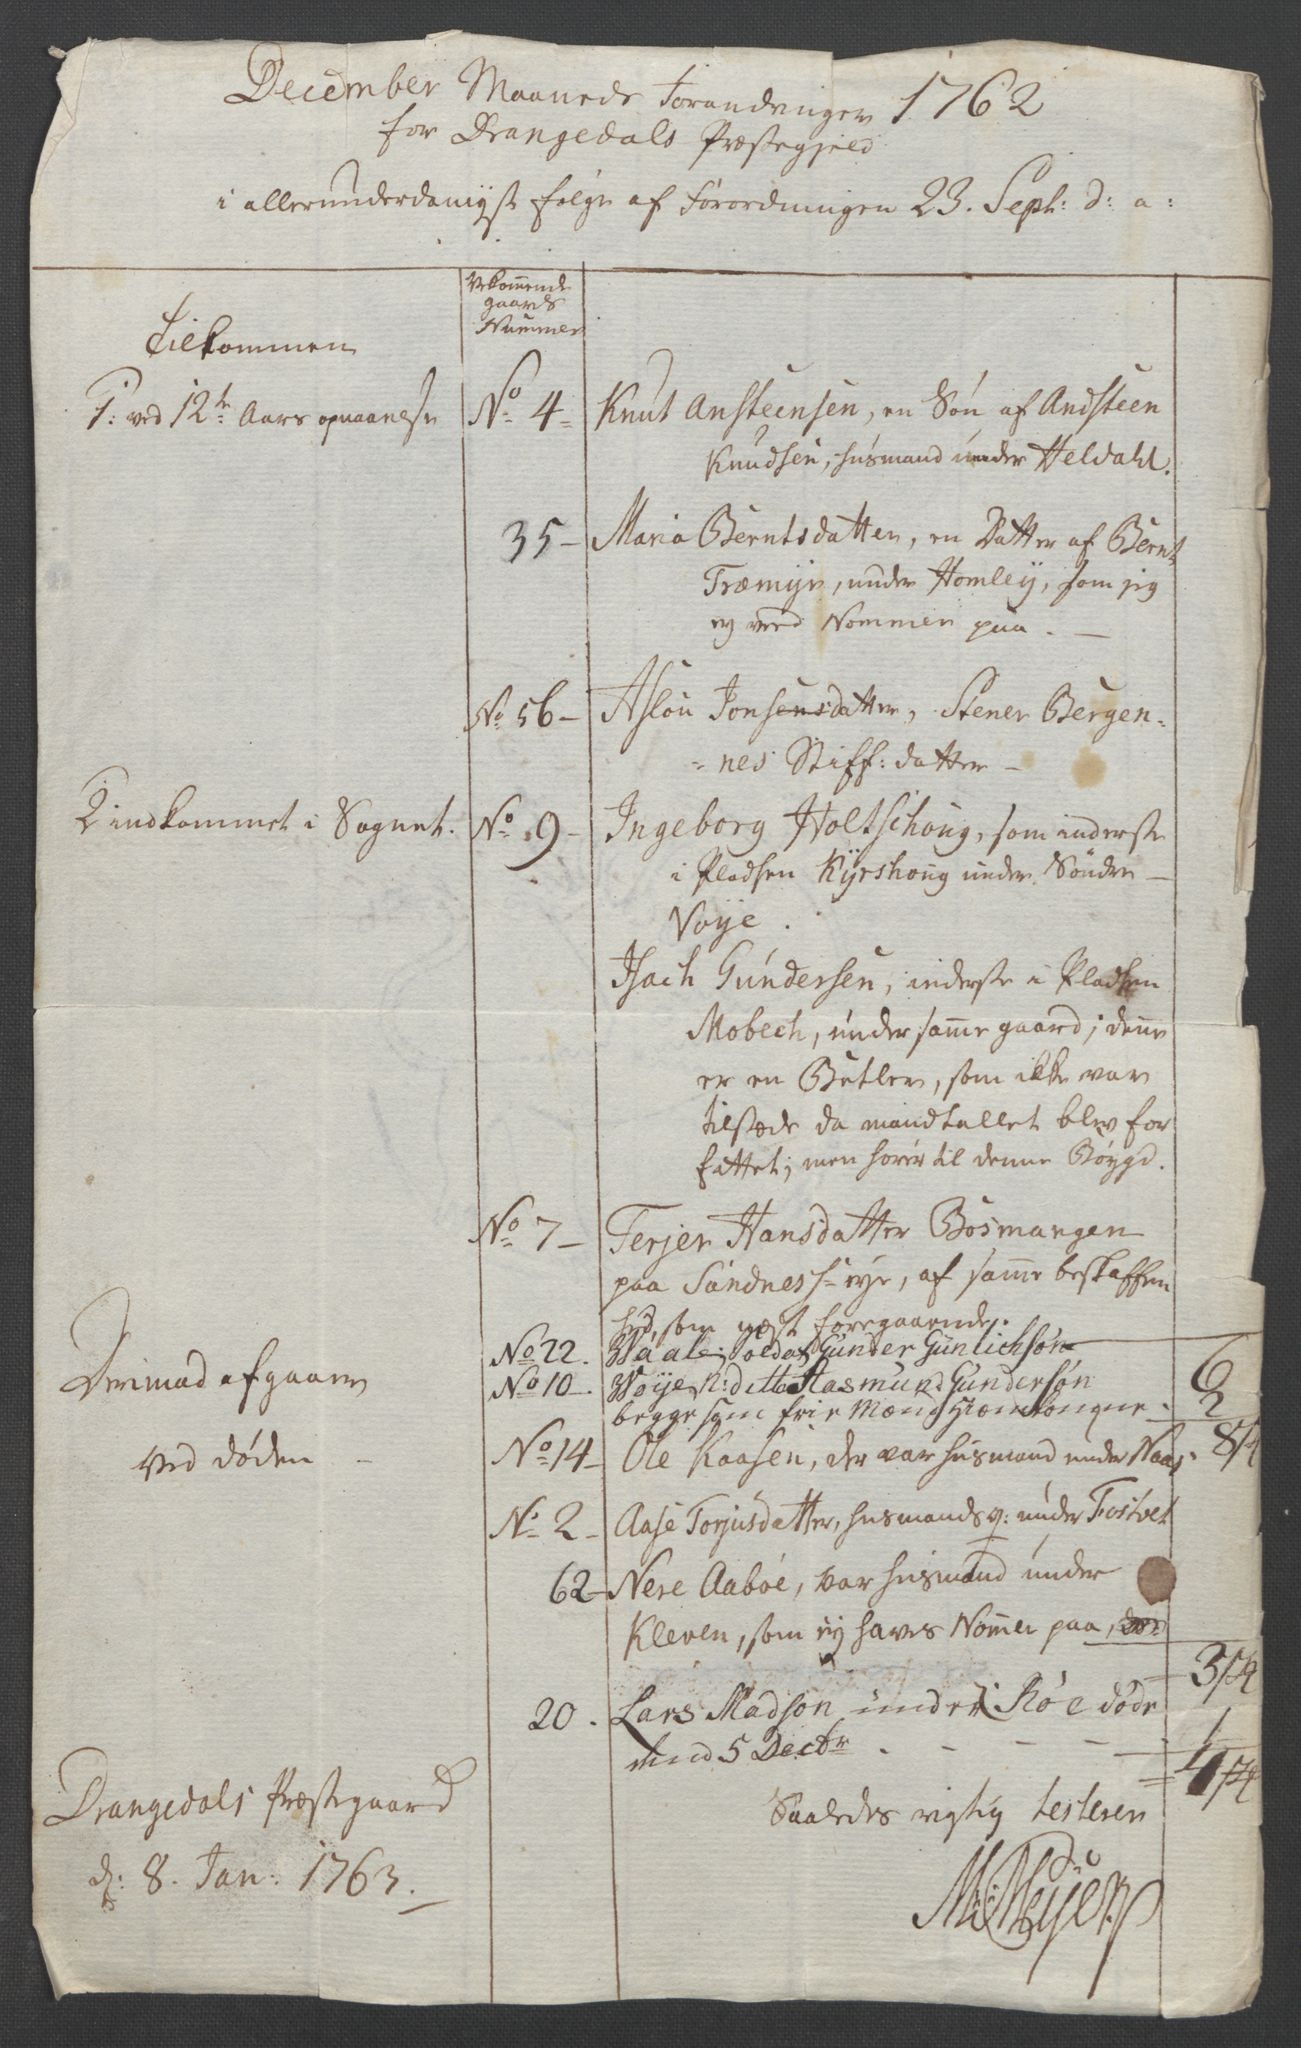 December Maaneds Forandringer 1762
for Drangedals Præstegjeld
i allerunderdanigst følge af Forordningen 23. Sept: d: a:
Vedkommende
gaards
Nummer
Tilkommen
1: ved 12te Aars opnaaelse
No 4 Knut Ansteensen, en Søn af Andsteen
Knudsen, huusmand under Heldahl.
35 - Maria Berntsdatter, en Datter af Bernt
Træmyr, under Homley, som jeg
ey veed Nommer paa. -
No 56 - Aslou Jonsensdatter, Stener Bergen-
=nes Stiff: datter -
2 indkommet i Sognet. No 9 - Ingeborg Holtschoug, som inderste
i Pladsen Kyrshoug under Sønder
Voje.
Isach Gundersen, inderste i Pladsen
Mobech, under samme gaard; denne
er en Betler, som ikke var
tilstæde da mandtallet blev for
fattet; men hører til denne Bøygd.
No 7 - Terjer Hansdatter Bosmangen
paa Sandnes eye, af samme beskaffen
hed, som næst foregaaende.
No 22. Waale, Soldat Gunder Gunlichsøn
No 10. Woye N: ditto Rasmund Gundersøn
begge som frie Mænd
6
2
8/4
Derimod afgaaen
ved døden -
No 14 - Ole Kaasen, der var huusmand under Naas.
No 2 - Aase Torjusdatter, huusmands q: under Fostvet
62 - Nere Aabøe, var huusmand under
Kleven, som ey haves Nomer paa,
3/4
20. Lars Madsøn under Røe døde
den 5 Decbr. - - - -
1
4/4
Drangedals Præstegaard
d: 8. Jan: 1763.
Saaledes rigtig testerer
M: Meyer